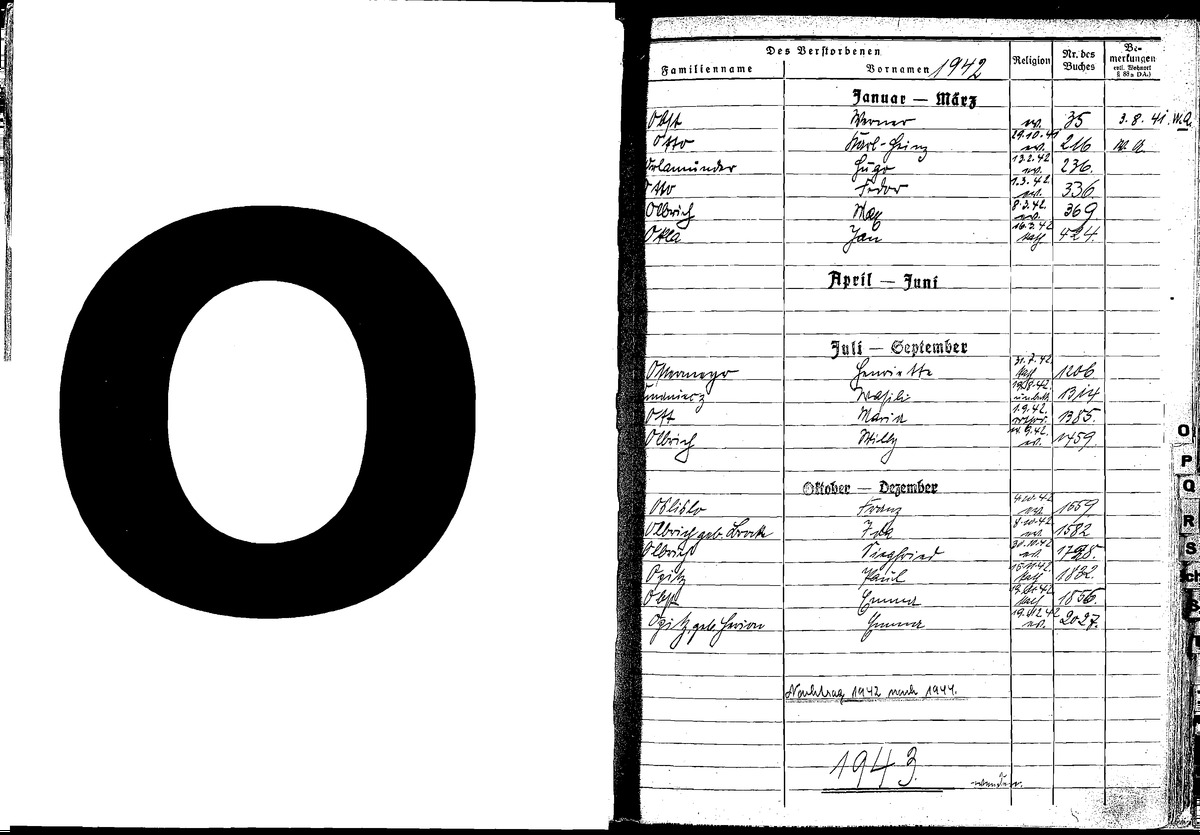 O
Des Verstorbenen
Familienname Vornamen 1942 Religion Nr. des Buches Be-merkungen evtl. Wohnort § 88a DA.)
Januar — März
Obst Werner ev. 35 3. 8. 41. W.A.
Otto Karl-Heinz 29.10.41 ev. 216 W.A.
Orlamünder Hugo 13.2.42 ev. 236.
Otto Fedor 1.3.42. ev. 336
Olbrich Max 8.3.42 ev. 369
Okla Jan 16.3.42 kath 424.
April — Juni
Juli — September
Ostermeyer Henriette 31.7.42. kath 1206
Wasili 19.8.42. 1314
Ott Maria 1.9.42. 1385.
Olbrich Willy 14.9.42. ev. 1459.
Oktober — Dezember
Oblislo Franz 4.10.42 ev. 1559
Olbrich geb. Brock Ida 8.10.42. ev. 1582
Olbrich Siegfried 31.10.42 ev. 1798.
Opitz Paul 15.11.42. kath 1832.
Obst Emma kath 1856.
Opitz, geb. Emma 19.12.42 ev. 2027.
Nachtrag 1942 nach 1944.
1943.
wenden.
O
P
Q
R
S
Sch